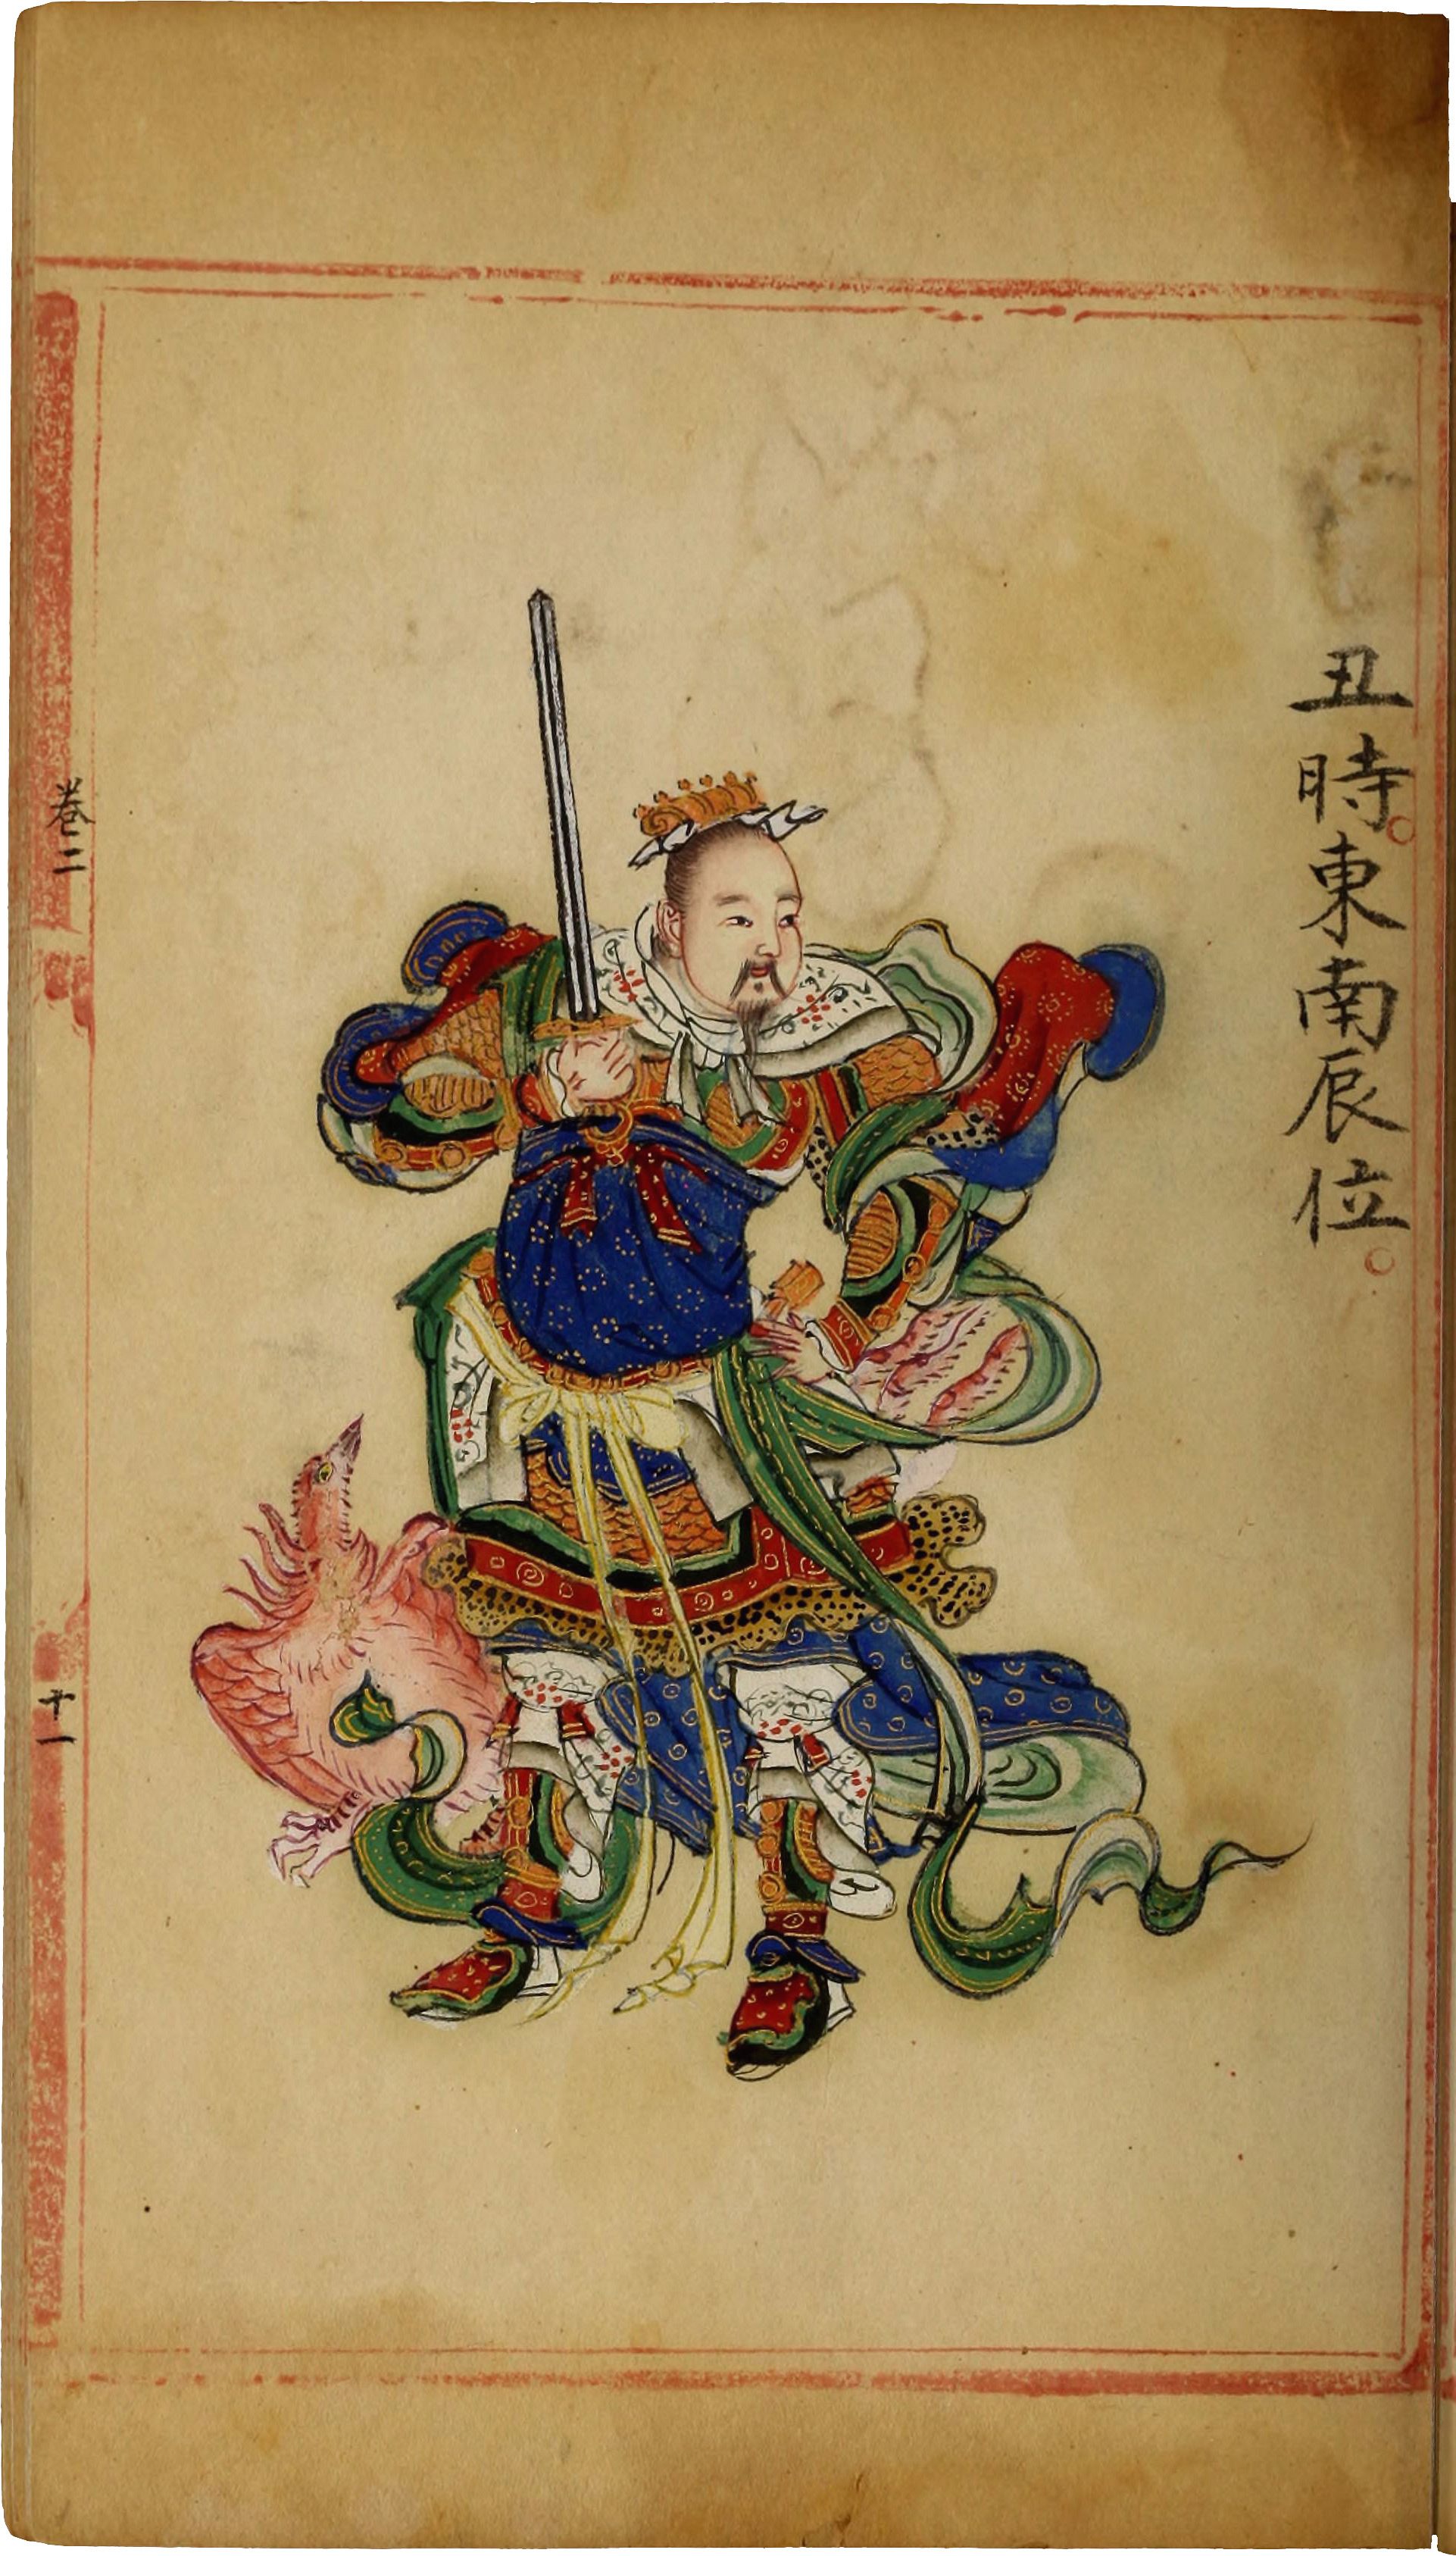 丑時東南辰位
卷二
十一